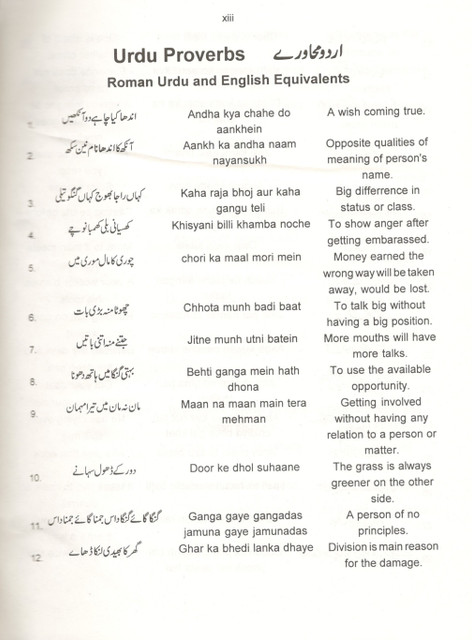 xiii
Urdu Proverbs اردو محاورے
Roman Urdu and English Equivalents
1. اندھا کیا چاہے دو آنکھیں Andha kya chahe do A wish coming true.
aankhein
2. آنکھ کا اندھا نام نین سکھ Aankh ka andha naam Opposite qualities of
nayansukh meaning of person's
name.
3. کہاں راجا بھوج کہاں گنگو تیلی Kaha raja bhoj aur kaha Big differrence in
gangu teli status or class.
4. کھسیانی بلی کھمبا نوچے Khisyani billi khamba noche To show anger after
getting embarassed.
5. چوری کا مال موری میں chori ka maal mori mein Money earned the
wrong way will be taken
away, would be lost.
6. چھوٹا منہ بڑی بات Chhota munh badi baat To talk big without
having a big position.
7. جتنے منہ اتنی باتیں Jitne munh utni batein More mouths will have
more talks.
8. بہتی گنگا میں ہاتھ دھونا Behti ganga mein hath To use the available
dhona opportunity.
9. مان نہ مان میں تیرا مہمان Maan na maan main tera Getting involved
mehman without having any
relation to a person or
matter.
10. دور کے ڈھول سہانے Door ke dhol suhaane The grass is always
greener on the other
side.
11. گنگا گائے گنگا داس جمنا گائے جمنا داس Ganga gaye gangadas A person of no
jamuna gaye jamunadas principles.
12. گھر کا بھیدی لنکا ڈھائے Ghar ka bhedi lanka dhaye Division is main reason
for the damage.